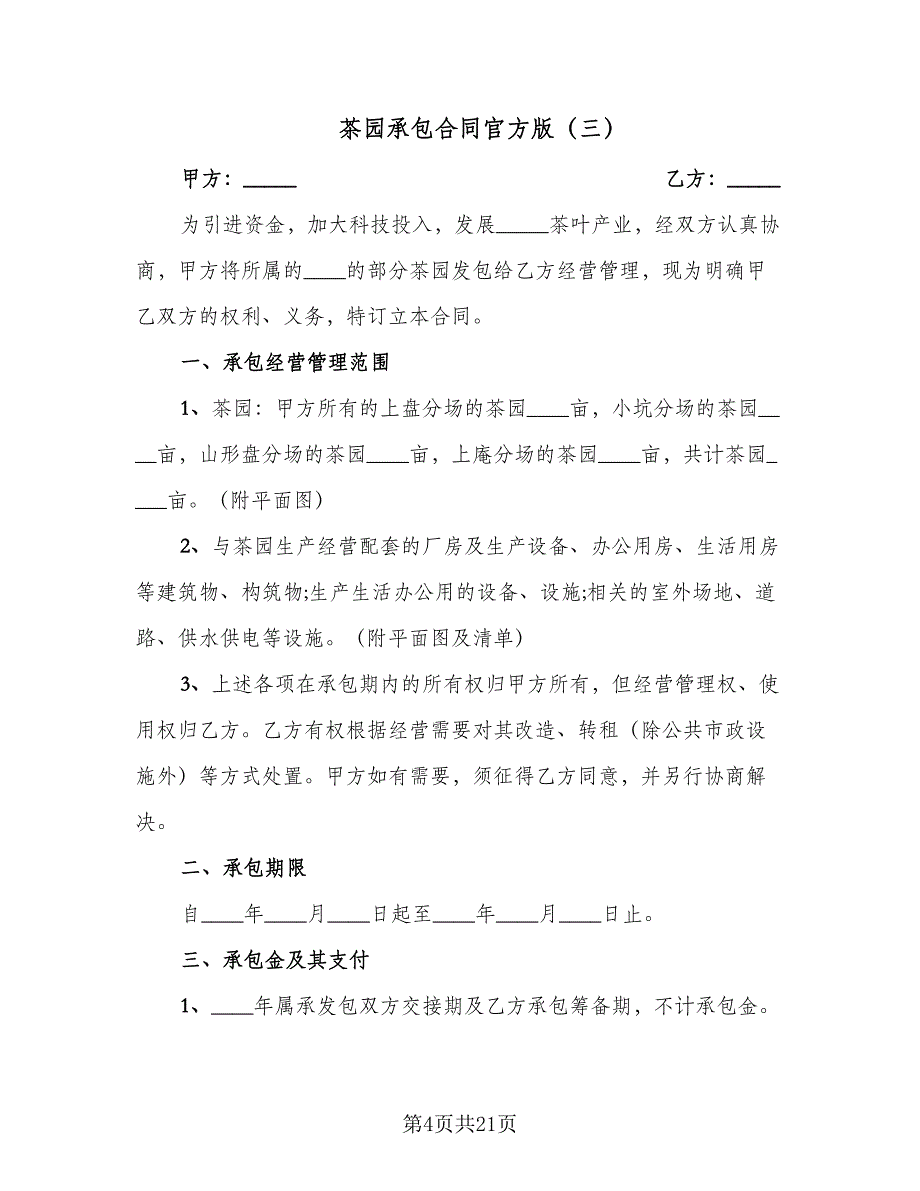 茶园承包合同官方版（三）
甲方：_____ 乙方：_____
为引进资金，加大科技投入，发展_____茶叶产业，经双方认真协
商，甲方将所属的____的部分茶园发包给乙方经营管理，现为明确甲
乙双方的权利、义务，特订立本合同。
一、承包经营管理范围
1、茶园：甲方所有的上盘分场的茶园____亩，小坑分场的茶园__
__亩，山形盘分场的茶园____亩，上庵分场的茶园____亩，共计茶园_
___亩。（附平面图）
2、与茶园生产经营配套的厂房及生产设备、办公用房、生活用房
等建筑物、构筑物;生产生活办公用的设备、设施;相关的室外场地、道
路、供水供电等设施。（附平面图及清单）
3、上述各项在承包期内的所有权归甲方所有，但经营管理权、使
用权归乙方。乙方有权根据经营需要对其改造、转租（除公共市政设
施外）等方式处置。甲方如有需要，须征得乙方同意，并另行协商解
决。
二、承包期限
自____年____月____日起至____年____月____日止。
三、承包金及其支付
1、____年属承发包双方交接期及乙方承包筹备期，不计承包金。
第4页共21页